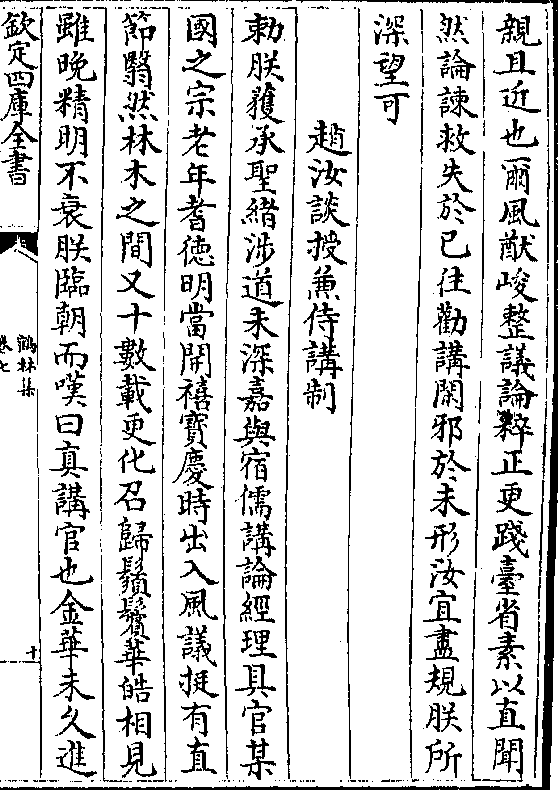 親且近也爾風猷峻整議論粹正更踐臺省素以直聞
然論諫救失於已往勸講閑邪於未形汝宜盡規朕所
深望可
趙汝談授兼侍講制
勅朕獲承聖緒涉道未深嘉與宿儒講論經理具官某
國之宗老年耆徳明當開禧寳慶時出入風議挺有直
節翳然林木之間又十數載更化召歸鬚鬢華皓相見
雖晩精明不衰朕臨朝而嘆曰真講官也金華未久進
欽定四庫全書
鶴林集
卷七
十